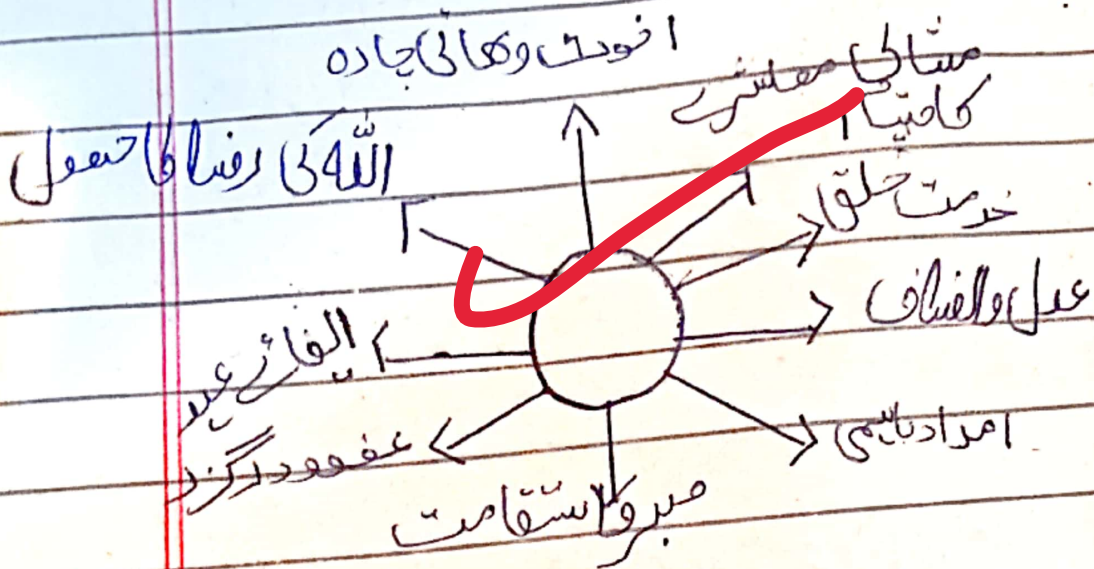 اخوت وبھائی چارہ
مثالی معاشرے
کا قیام
اللّٰہ کی رضا کا حصول
خدمت خلق
عدل وانصاف
ایفائے عہد
امداد باہمی
عفوودرگزر
صبر و استقامت